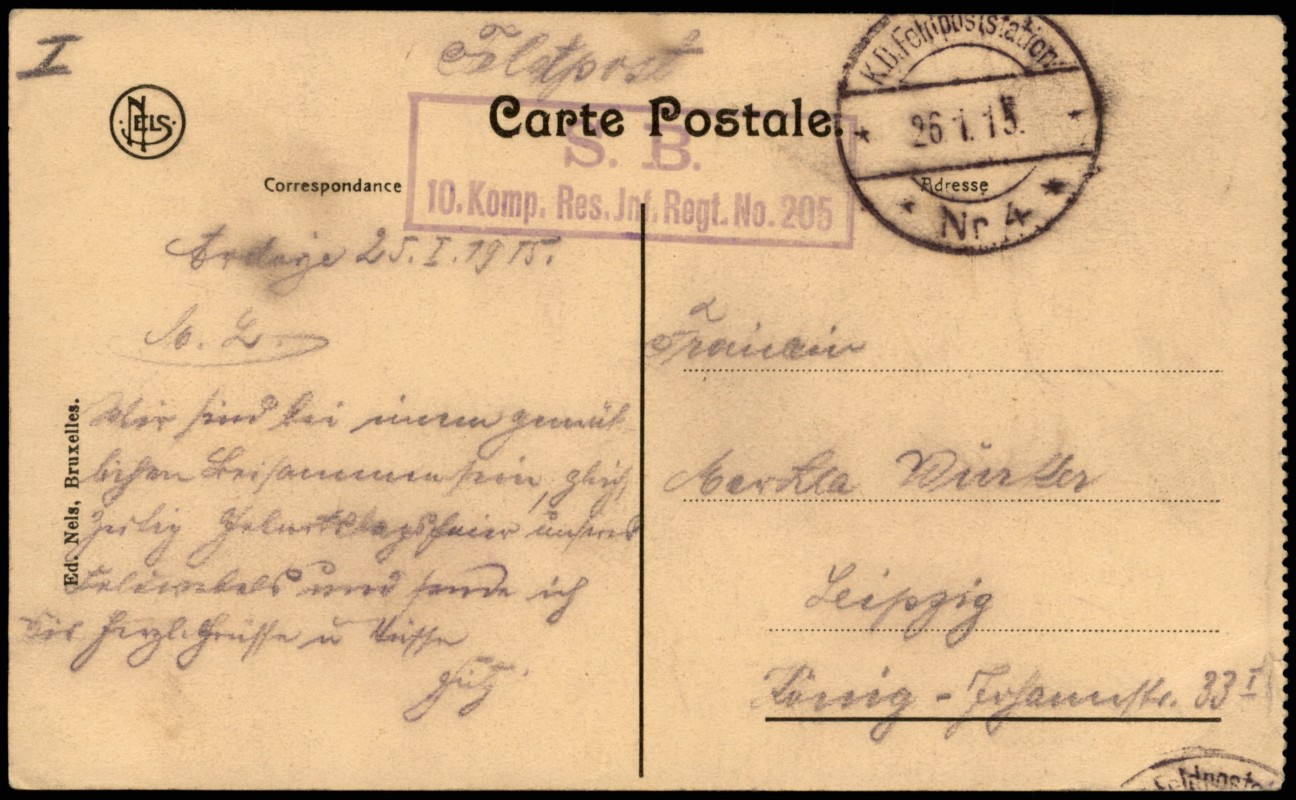 I
Feldpost
NELS
Carte Postale.
K.D. Feldpoststation
26.1.15.
Nr 4
S. B.
10. Komp. Res. Inf. Regt. No. 205
Correspondance
Adresse
25. I. 1915.
M. L.
Fräulein
Wir sind bei einem gemüt
lichen Beisammensein, gleich
zeitig Geburtstagsfeier unseres
Feldwebels und sende ich
Dir herzl. Grüsse u Küsse
Martha
Leipzig
König-Johannstr. 33 I
Ed. Nels, Bruxelles.
Feldpost